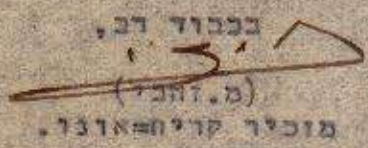 בכבוד רב,
(מ.זהבי)
מזכיר קרית=אונו.